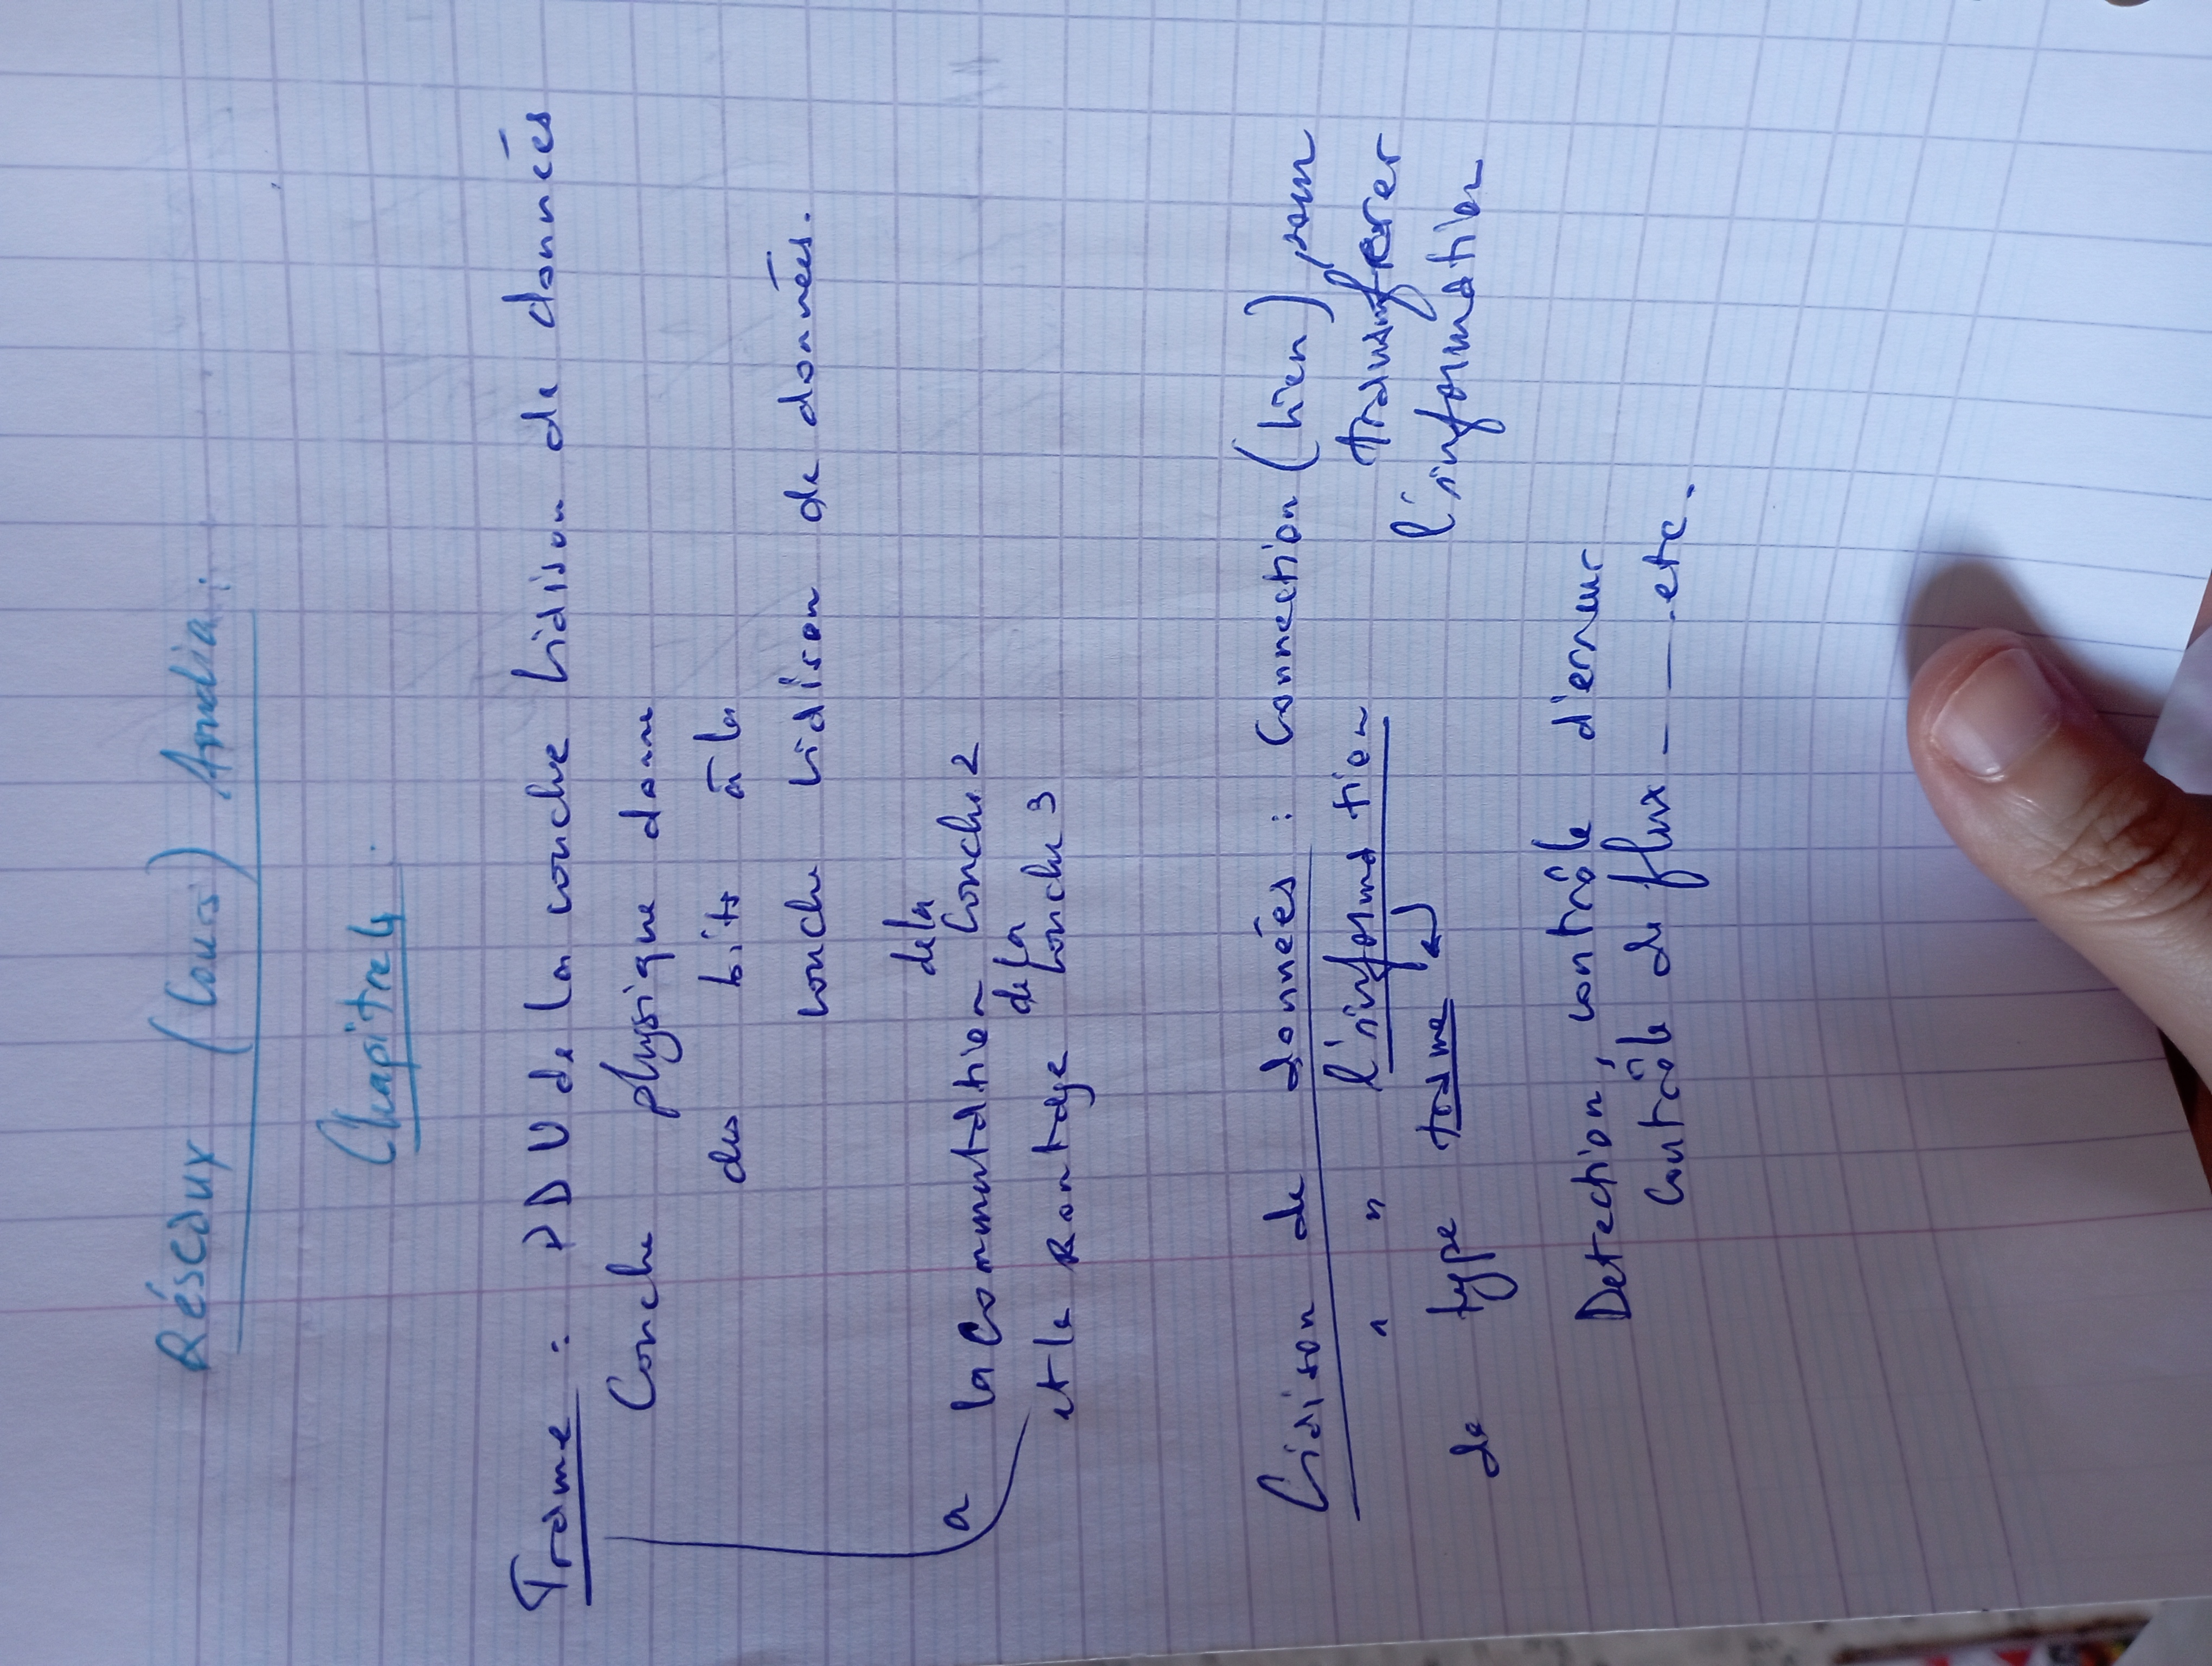 Réseaux (Cours)
Chapitre 4.
Trame : PDU de la couche Liaison de données
Couche physique donne
des bits à la
couche Liaison de données.
de la
a la commutation couche 2
de la
et le Routage couche 3
Liaison de données : Connection (lien) pour
" " l'information transferer
de type trame l'information
Detection, contrôle d'erreur
contrôle de flux - - - etc.